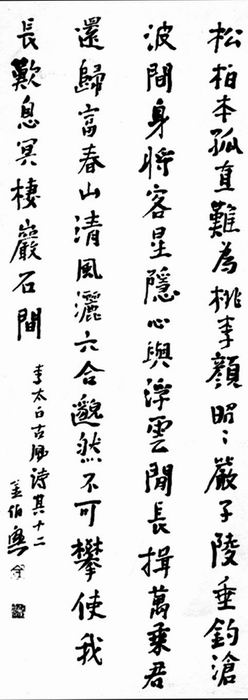 松柏本孤直難為桃李顏昭〻嚴子陵垂釣滄
波間身將客星隱心與浮雲閒長揖萬乘君
還歸富春山清風灑六合邈然不可攀使我
長歎息冥棲巖石間
李太白古風詩其十二